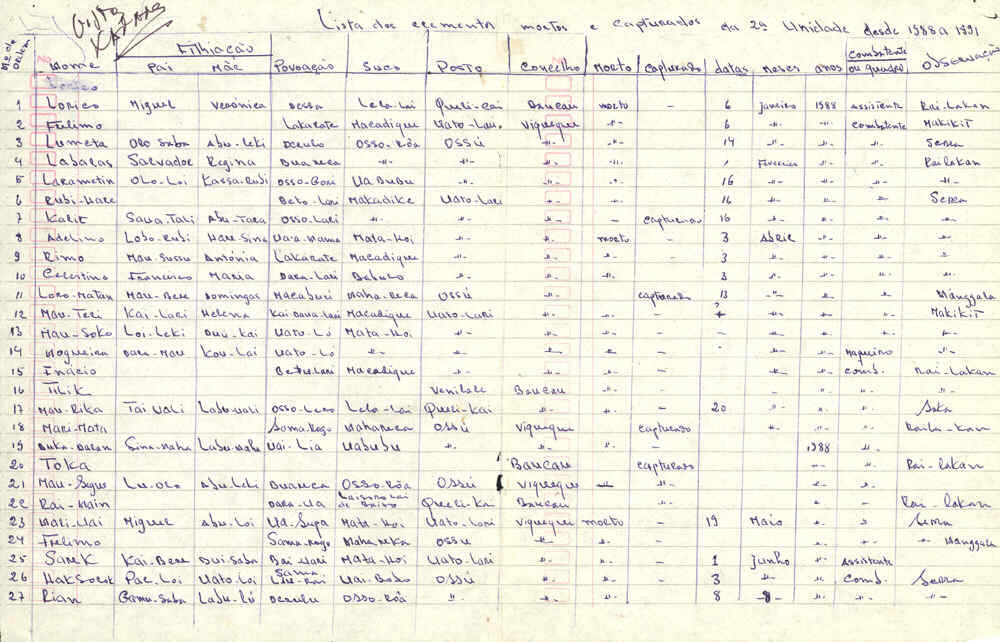 Lista dos elementos mortos e capturados da 2ª Unidade desde 1988 a 1991
Nº de ordem Nome Filhiação Pai Mãe Povoação Suco Posto Concelho Morto Capturado datas meses anos Combatente ou quadro Observação
Lorico
1 Lorico Miguel Verónica Dessa Lelo-Lai Queli-Cai Baucau morto - 6 janeiro 1988 Assistente Rai-Lakan
2 Frelimo Lakarate Macadique Uato-Lari Viqueque -"- 6 -"- -"- Combatente MakiKiT
3 Lumeta Oro Saba Abu-Leki Osso-Rôa Ossú -"- -"- 14 -"- -"- -"- Serra
4 Labaras Salvador Regina Buanara -"- -"- -"- -"- 1 Fevereiro -"- -"- Railakan
5 Laramotin Olo-Loi Kassa-Rubi Osso-Gori Uabubu -"- -"- -"- 16 -"- -"- -"- -"-
6 Rubi-Mare Beto-Lari Makadike Uato-Lari -"- -"- 16 -"- -"- -"- Serra
7 Karik Saua-Tali Abu-Tara Osso-Lari -"- -"- -"- capturado 16 -"- -"- -"- -"-
8 Adelino Lobo-Rubi Hare-Sina Mata-Hoi -"- -"- morto - 3 Abril -"- -"- -"-
9 Rimo Mau-Sussu Antónia Lakarate Macadique -"- -"- -"- - 3 -"- -"- -"- -"-
10 Celestino Francisco Maria Dara-Lari Babulo -"- -"- -"- 3 -"- -"- -"- -"-
11 Loro-Matan Mau-Bere Domingas Macaburi Maha-Reca Ossú capturado 13 -"- -"- -"- Manggala
12 Mau-Teri Kai-Lari Helena Macadique Uato-Lari -"- -"- - ? -"- -"- -"- MakiKiT
13 Mau-Soko Loi-Leki Dui-Kai Uato-Ló Mata-Hoi -"- -"- -"- - - -"- -"- -"- -"-
14 Nogueira Dara-Mau Kou-Lai Uato-Ló -"- -"- -"- -"- - -"- Maqueiro -"-
15 Inácio Betu-Lari Macadique -"- -"- -"- - -"- -"- Comb. Rai-Lakan
16 Tilik Venilale Baucau -"- - -"- -"- -"-
17 Mau-Rika Tai Uali Labu-Uali Osso-Lero Lelo-Lai Queli-Kai -"- -"- - 20 -"- -"- -"- Saka
18 Mari-Mata Soma-Rogo Mahareca Ossú Viqueque capturado -"- -"- -"- Raila-Kan
19 Duka-Daran Sina-Naha Labu-Naha Uai-Lia Uabubu -"- -"- -"- 1988 -"-
20 Toka Baucau capturado -"- -"- Rai-Lakan
21 Mau-Sigue Lu-Olo Abu-Leki Buanara Osso-Rôa Ossú Viqueque -"- - -"- -"- -"-
22 Rai-Nain Dara-Ua Laisorolai de Baixo Queli-Kai Baucau -"- - -"- - Rai-Lakan
23 Mali-Uai Miguel Abu-Loi Ua-Supa Mata-Hoi Uato-Lari Viqueque morto - 19 Maio -"- -"- Serra
24 Frelimo Soma-Rogo Maha-Reka Ossú -"- -"- - -"- -"- Manggala
25 Sarek Kai-Bere Dui-Saba Bui-Uari Mata-Hoi Uato-Lari -"- -"- - 1 junho -"- Assistente
26 Haksolok Pae-Loi Uato-Loi Uai-Bobo Ossú -"- -"- - 3 -"- -"- Comb. Serra
27 Rian Gamu-Saba Labu-Ló Osso-Rôa -"- -"- -"- - 8 -8- -"- -"- -"-